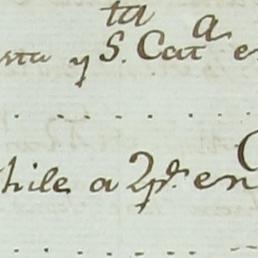 y S.ta Cat.a e
hile a 2p.s en